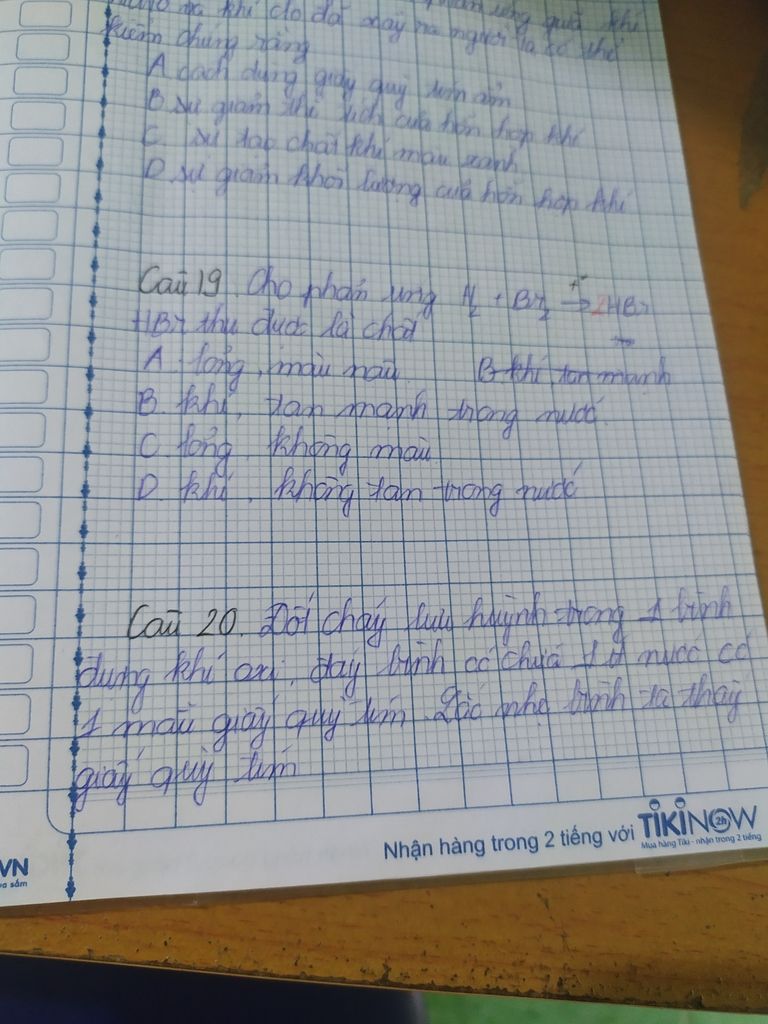 ra khí do đó xảy ra người ta có thể
kiểm chứng rằng
A. cách dùng giấy quỳ tím ẩm
B. sự giảm thể tích của hỗn hợp khí
C. sự tạo chất khí màu xanh
D. sự giảm khối lượng của hỗn hợp khí
Câu 19. Cho phản ứng H2 + Br2 → 2HBr
HBr thu được là chất
A. lỏng, màu nâu. B khí tan mạnh
B. khí, tan mạnh trong nước.
C. lỏng, không màu.
D. khí, không tan trong nước
Câu 20. Đốt cháy lưu huỳnh trong 1 bình
đựng khí oxi, đáy bình có chứa 1 ít nước có
1 mẩu giấy quỳ tím. Lắc nhẹ bình ta thấy
giấy quỳ tím
Nhận hàng trong 2 tiếng với TIKINOW 2h
Mua hàng Tiki - nhận trong 2 tiếng
VN
a sắm